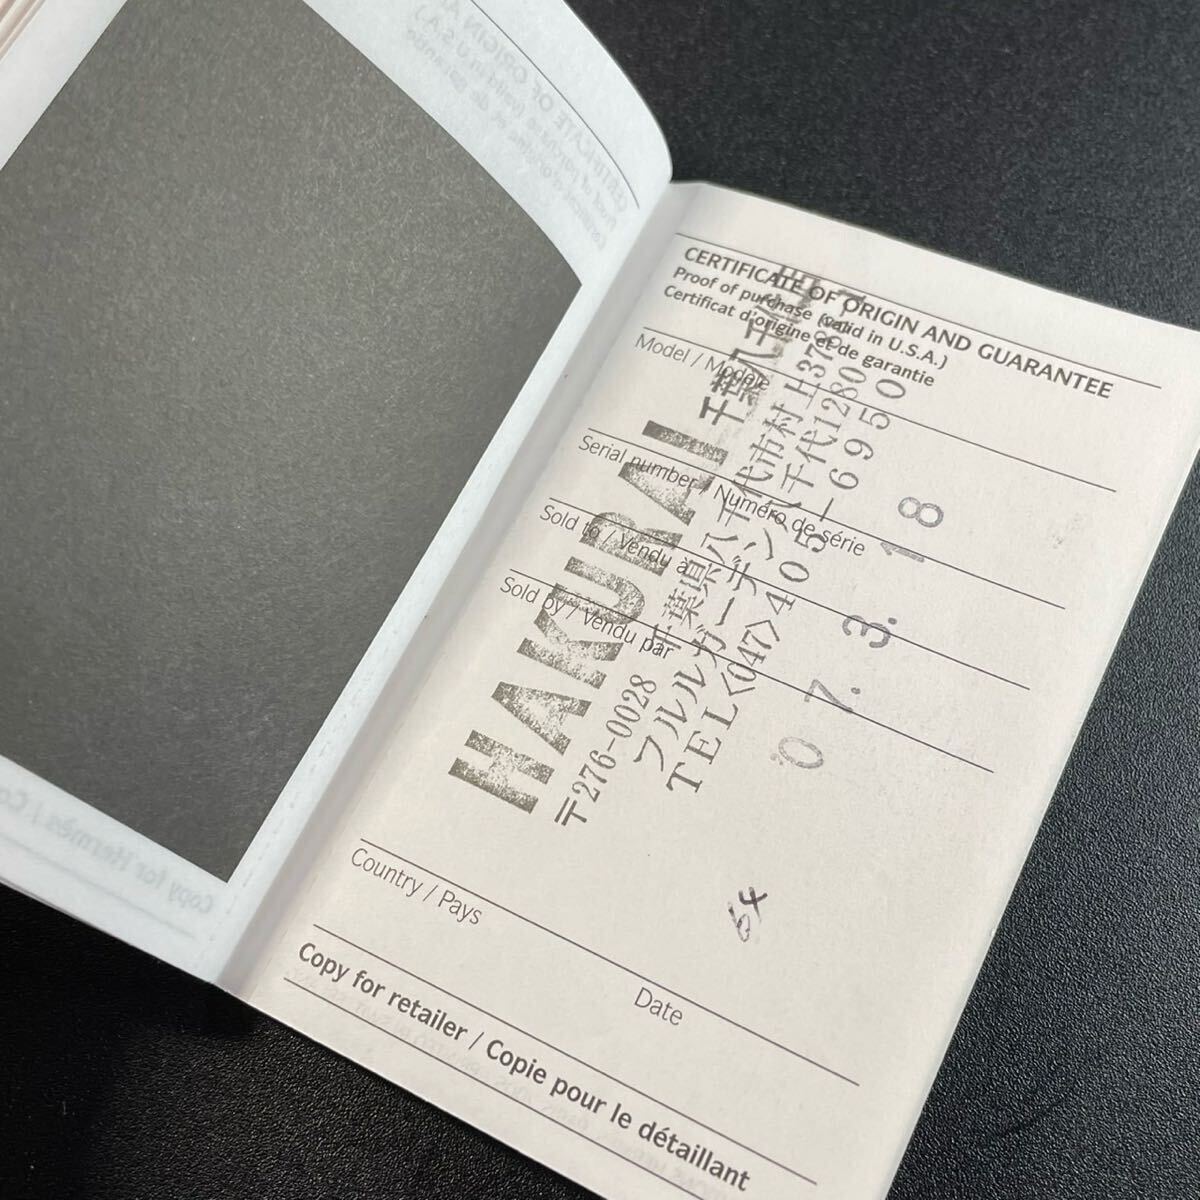 CERTIFICATE OF ORIGIN AND GUARANTEE
Proof of purchase (valid in U.S.A.)
Certificat d'origine et de garantie
Model / Modèle
Serial number / Numéro de série
Sold to / Vendu à
Sold by / Vendu par
HAKURAI 千葉八千代
〒276-0028 千葉県八千代市村上
フルルガーデン八千代
TEL<047>405-6950
07. 3. 18
64
Country / Pays
Date
Copy for retailer / Copie pour le détaillant
Copy for Hermès / Co